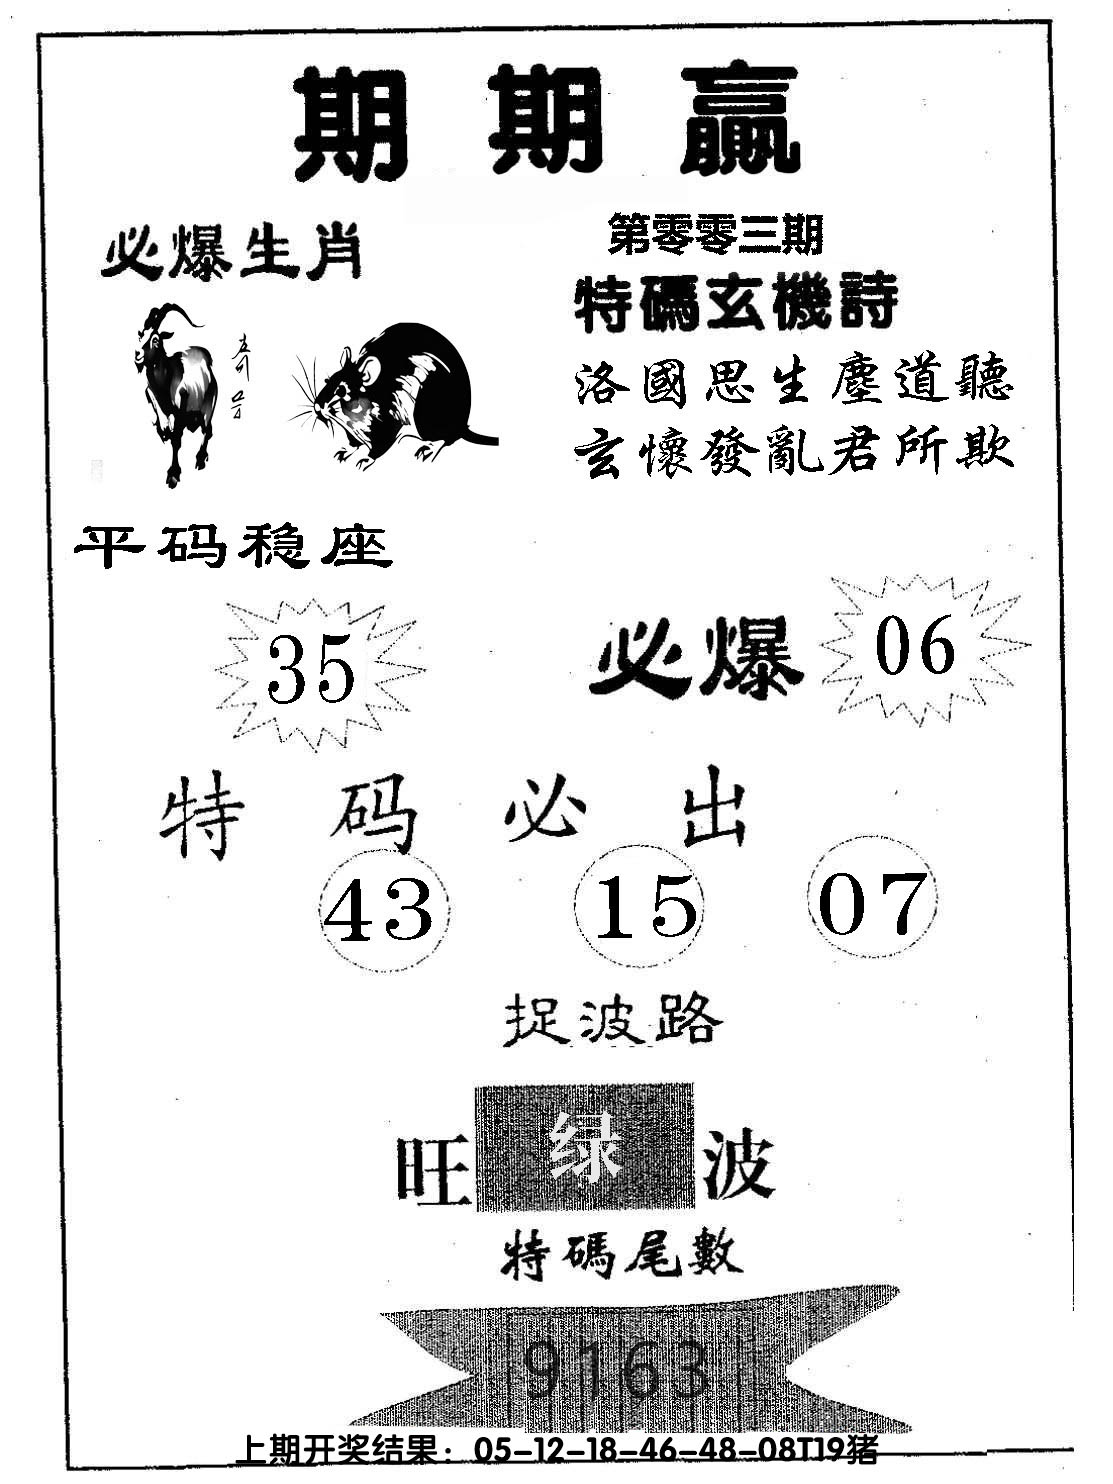 期期赢
必爆生肖
第零零三期
特碼玄機詩
洛國思生塵道聽
玄懷發亂君所欺
平码稳座
35
必爆 06
特码必出
43 15 07
捉波路
旺 绿 波
特碼尾數
9163
上期开奖结果：05-12-18-46-48-08T19猪